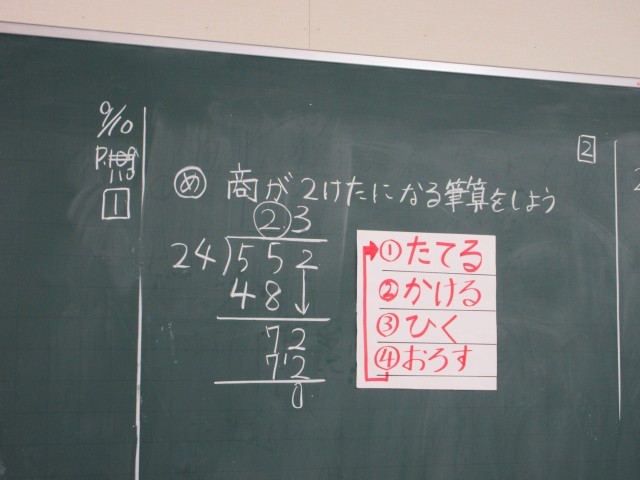 9/10
P.109
110
1
め 商が2けたになる筆算をしよう
23
24)552
48
72
72
0
①たてる
②かける
③ひく
④おろす
2